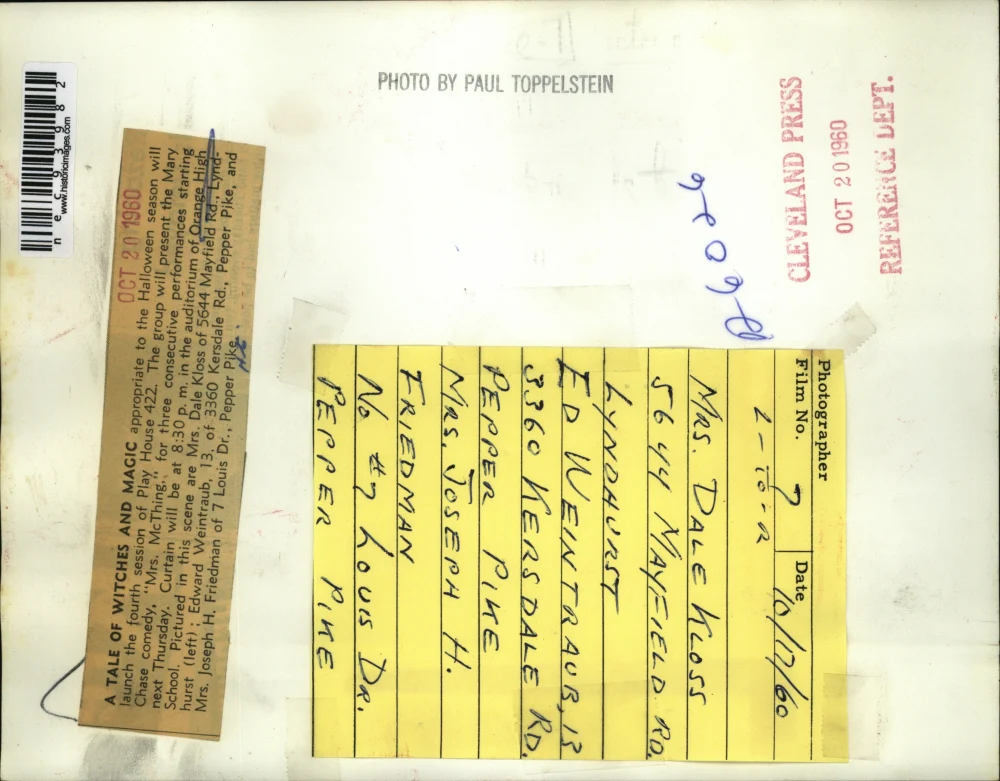 PHOTO BY PAUL TOPPELSTEIN
CLEVELAND PRESS
OCT 20 1960
REFERENCE DEPT.
nec93982
www.historicimages.com
OCT 20 1960
A TALE OF WITCHES AND MAGIC appropriate to the Halloween season will
launch the fourth session of Play House 422. The group will present the Mary
Chase comedy, "Mrs. McThing," for three consecutive performances starting
next Thursday. Curtain will be at 8:30 p. m. in the auditorium of Orange High
School. Pictured in this scene are Mrs. Dale Kloss of 5644 Mayfield Rd., Lynd-
hurst (left); Edward Weintraub, 13, of 3360 Kersdale Rd., Pepper Pike, and
Mrs. Joseph H. Friedman of 7 Louis Dr., Pepper Pike.
Photographer
Film No. Date 10/17/60
MRS. DALE KLOSS
5644 MAYFIELD RD.
LYNDHURST
ED WEINTRAUB, 13
3360 KERSDALE RD.
PEPPER PIKE
MRS. JOSEPH H.
FRIEDMAN
NO #7 LOUIS DR.
PEPPER PIKE